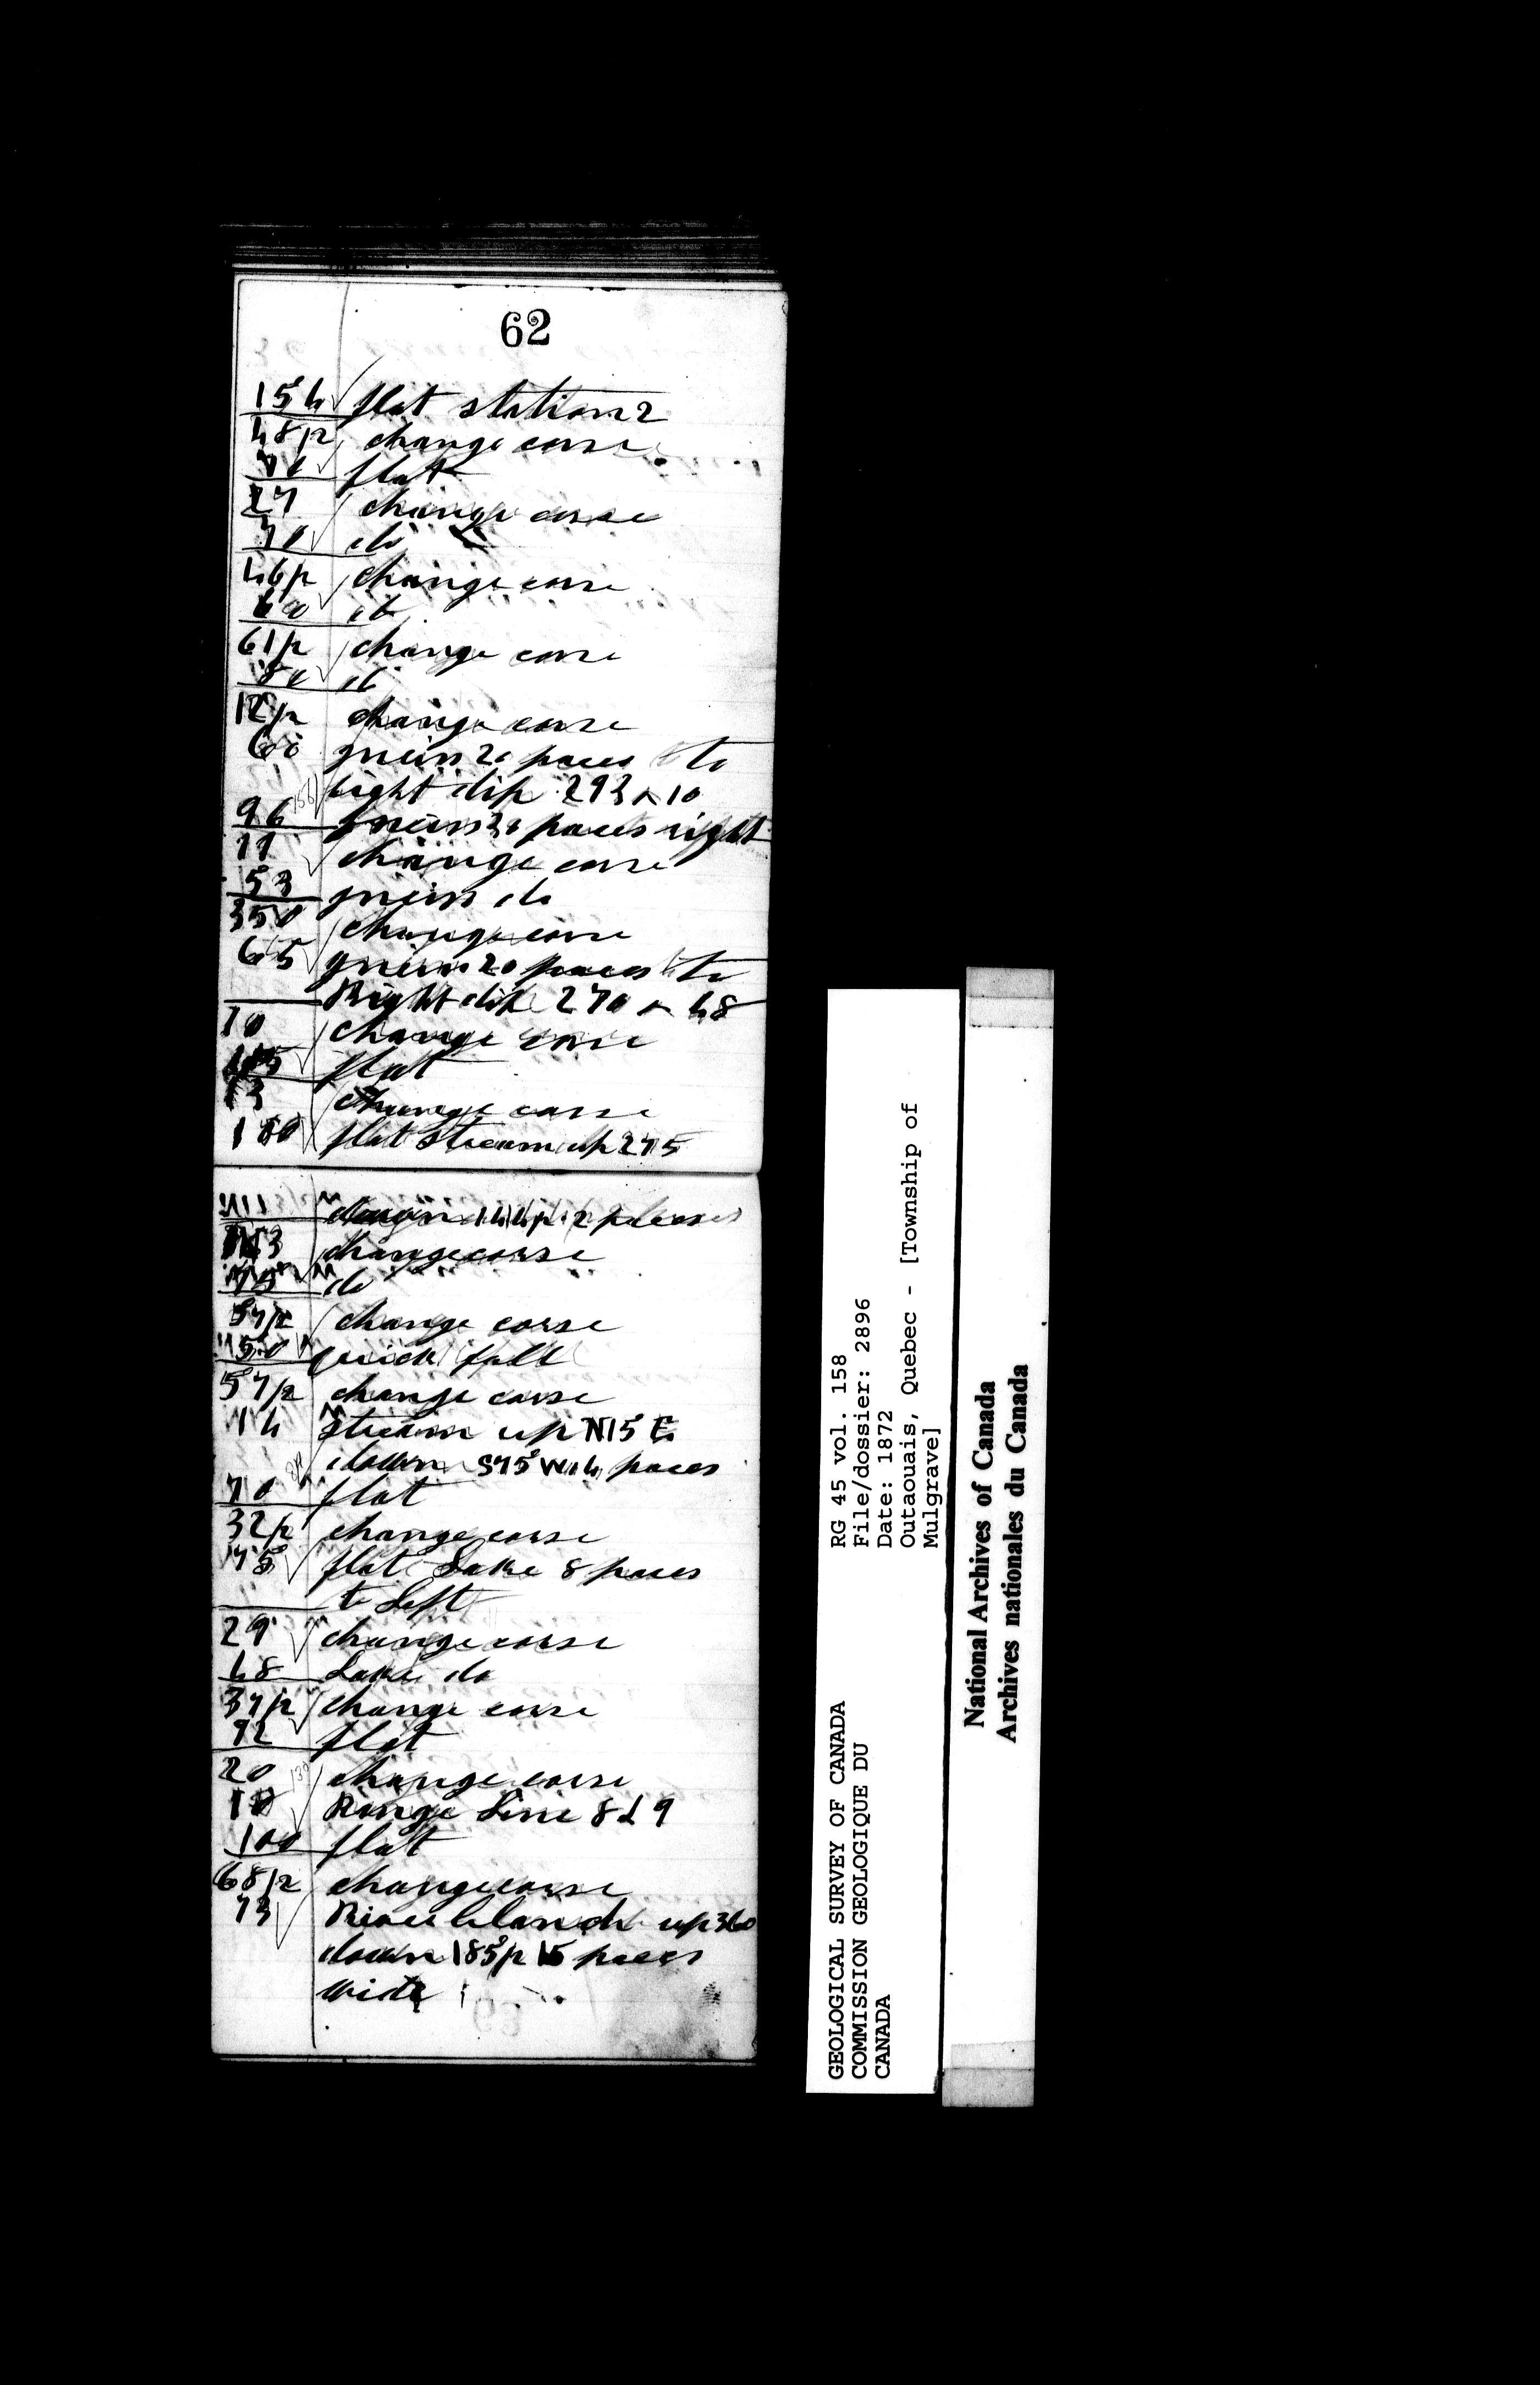 62
154 flat station 2
48½ change corse
flat
27 change corse
70 do
46½ change corse
60 do
61½ change corse
do
12½ change corse
60 gneiss 20 paces to
right dip 293 < 10
96 gneiss 30 paces right
11 change corse
53 gneiss do
350 change corse
65 gneiss 20 paces to
Right dip 270 < 48
10 change corse
flat
13 change corse
180 flat stream up 275
down 144½ 2 paces
change corse
75 do
57½ change corse
50 quick fall
57½ change corse
14 stream up N15E
down S75W 14 paces
70 flat
32½ change corse
75 flat Lake 8 paces
to Left
29 change corse
48 Lake do
37½ change corse
92 flat
20 change corse
10 Range Line 8 & 9
100 flat
68½ change corse
73 River blanch up 360
down 185½ 15 paces
wide
GEOLOGICAL SURVEY OF CANADA
COMMISSION GEOLOGIQUE DU
CANADA
RG 45 vol. 158
File/dossier: 2896
Date: 1872
Outaouais, Quebec - [Township of
Mulgrave]
National Archives of Canada
Archives nationales du Canada